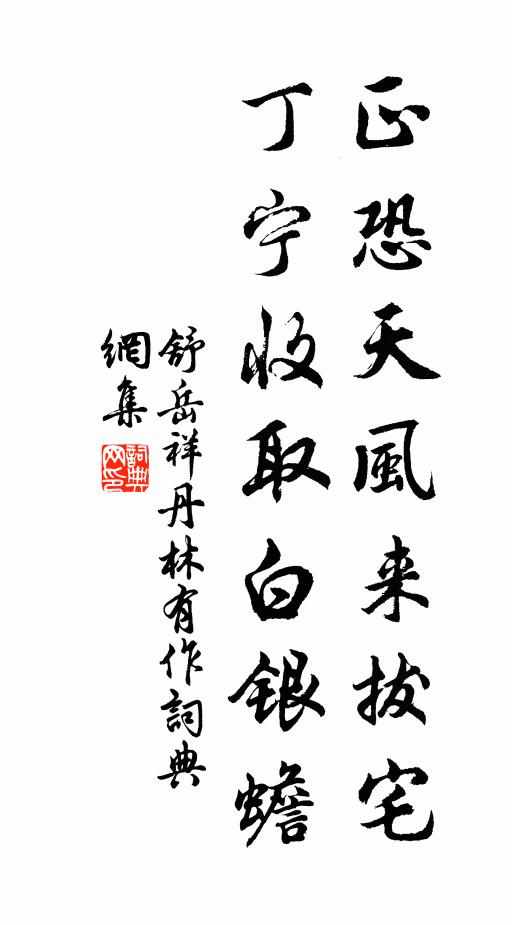 正恐天風来拔宅
丁宁收取白銀蟾
舒岳祥丹林有作詞典
網集
詞典
网印